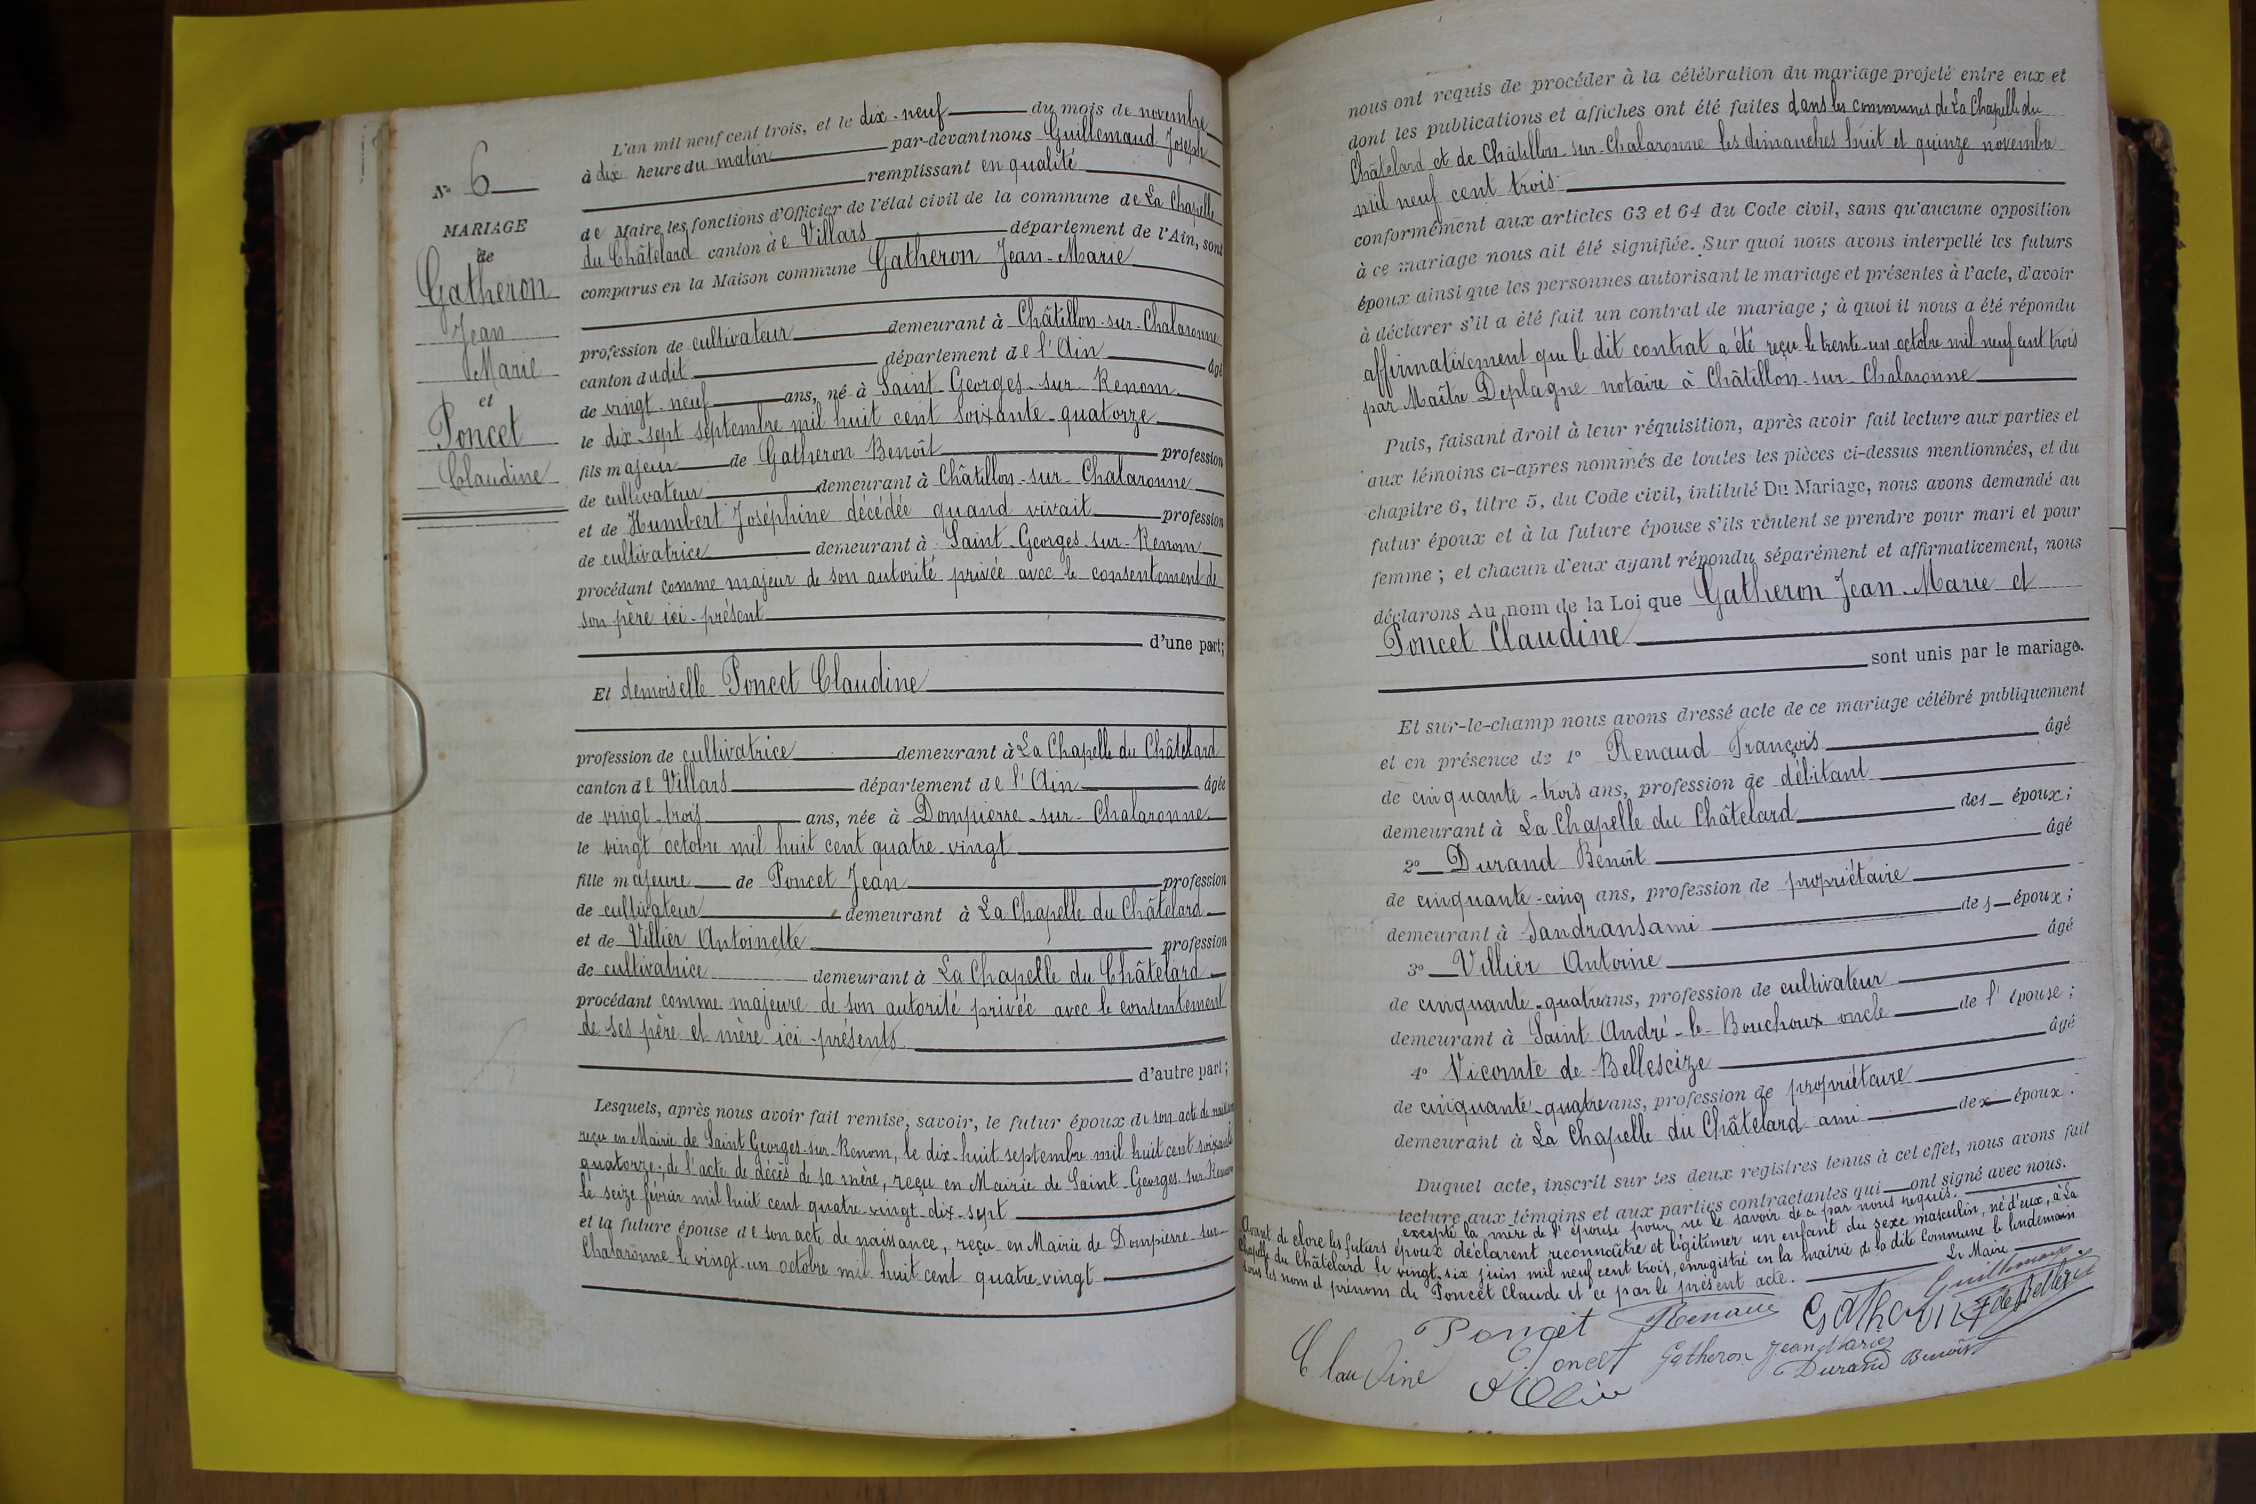 N° 6
MARIAGE
de
Gatheron
Jean
Marie
et
Poncet
Claudine
L'an mil neuf cent trois, et le dix-neuf du mois de novembre
à dix heure du matin par-devant nous Guillemaud Joseph
remplissant en qualité
de Maire, les fonctions d'Officier de l'état civil de la commune de La Chapelle
du Châtelard canton de Villars département de l'Ain, sont
comparus en la Maison commune Gatheron Jean-Marie
profession de cultivateur demeurant à Châtillon-sur-Chalaronne
canton dudit département de l'Ain âgé
de vingt-neuf ans, né à Saint-Georges-sur-Renom
le dix-sept septembre mil huit cent soixante-quatorze
fils majeur de Gatheron Benoît profession
de cultivateur demeurant à Châtillon-sur-Chalaronne
et de Humbert Joséphine décédée quand vivait profession
de cultivatrice demeurant à Saint-Georges-sur-Renom
procédant comme majeur de son autorité privée avec le consentement de
son père ici-présent
d'une part;
Et demoiselle Poncet Claudine
profession de cultivatrice demeurant à La Chapelle du Châtelard
canton de Villars département de l'Ain âgée
de vingt-trois ans, née à Dompierre-sur-Chalaronne
le vingt octobre mil huit cent quatre-vingt
fille majeure de Poncet Jean profession
de cultivateur demeurant à La Chapelle du Châtelard
et de Villier Antoinette profession
de cultivatrice demeurant à La Chapelle du Châtelard
procédant comme majeure de son autorité privée avec le consentement
de ses père et mère ici-présents
d'autre part;
Lesquels, après nous avoir fait remise, savoir, le futur époux de son acte de naissance
reçu en Mairie de Saint Georges-sur-Renom, le dix-huit septembre mil huit cent soixante
quatorze; de l'acte de décès de sa mère, reçu en Mairie de Saint-Georges-sur-Renom
le seize février mil huit cent quatre-vingt-dix-sept
et la future épouse de son acte de naissance, reçu en Mairie de Dompierre-sur-
Chalaronne le vingt-un octobre mil huit cent quatre-vingt
nous ont requis de procéder à la célébration du mariage projeté entre eux et
dont les publications et affiches ont été faites dans les communes de La Chapelle du
Châtelard et de Châtillon-sur-Chalaronne les dimanches huit et quinze novembre
mil neuf cent trois
conformément aux articles 63 et 64 du Code civil, sans qu'aucune opposition
à ce mariage nous ait été signifiée. Sur quoi nous avons interpellé les futurs
époux ainsi que les personnes autorisant le mariage et présentes à l'acte, d'avoir
à déclarer s'il a été fait un contrat de mariage; à quoi il nous a été répondu
affirmativement que le dit contrat a été reçu le trente-un octobre mil neuf cent trois
par Maître Deplagne notaire à Châtillon-sur-Chalaronne
Puis, faisant droit à leur réquisition, après avoir fait lecture aux parties et
aux témoins ci-après nommés de toutes les pièces ci-dessus mentionnées, et du
chapitre 6, titre 5, du Code civil, intitulé Du Mariage, nous avons demandé au
futur époux et à la future épouse s'ils veulent se prendre pour mari et pour
femme; et chacun d'eux ayant répondu séparément et affirmativement, nous
déclarons Au nom de la Loi que Gatheron Jean-Marie et
Poncet Claudine
sont unis par le mariage.
Et sur-le-champ nous avons dressé acte de ce mariage célébré publiquement
et en présence de 1° Renaud François âgé
de cinquante-trois ans, profession de débitant
demeurant à La Chapelle du Châtelard des époux;
2° Durand Benoît âgé
de cinquante-cinq ans, profession de propriétaire
demeurant à Sandrans ami des époux;
3° Villier Antoine âgé
de cinquante-quatre ans, profession de cultivateur
demeurant à Saint André-le-Bouchoux oncle de l'épouse;
4° Vicomte de Bellescize âgé
de cinquante-quatre ans, profession de propriétaire
demeurant à La Chapelle du Châtelard ami des époux.
Duquel acte, inscrit sur les deux registres tenus à cet effet, nous avons fait
lecture aux témoins et aux parties contractantes qui ont signé avec nous.
excepté la mère de l'épouse pour ne le savoir de ce par nous requis.
Avant de clore les futurs époux déclarent reconnaître et légitimer un enfant du sexe masculin, né d'eux, à La
Chapelle du Châtelard le vingt-six juin mil neuf cent trois, enregistré en la mairie de la dite Commune le lendemain
sous les nom et prénom de Poncet Claude et ce par le présent acte. Le Maire
Guillemaud
Poncet Renaud Gatheron
Claudine Poncet Gatheron Jean Marie
Durand Benoît